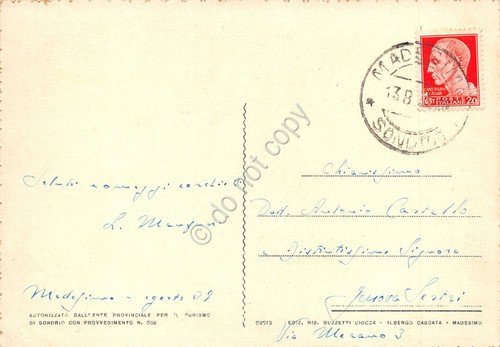 Saluti omaggi
L.
Madesimo - agosto 09
AUTORIZZATO DALL'ENTE PROVINCIALE PER IL TURISMO
DI SONDRIO CON PROVVEDIMENTO N. 502
MADE
13.8
SONDRI
20
do not copy
Chiarissimo
Dott. Antonio Castello
e Distintissima Signora
Genova Sestri
Via Merano 3
EDIZ. NIP. BUZZETTI CIOCCA - ALBERGO CASCATA - MADESIMO